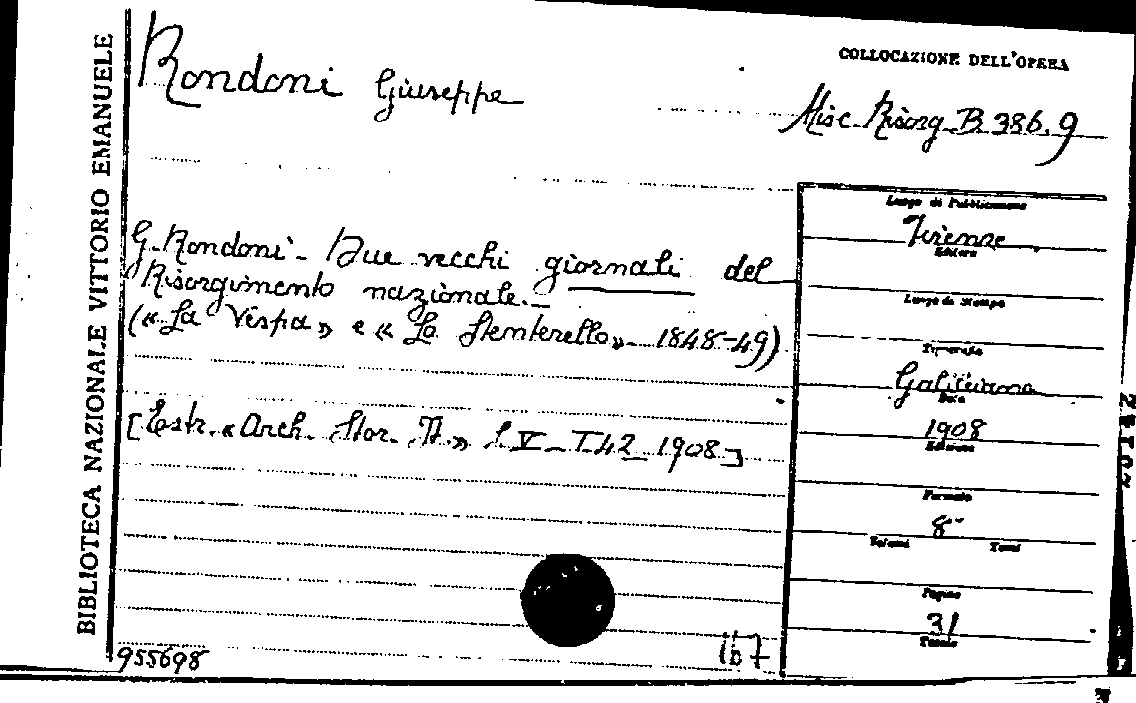 BIBLIOTECA NAZIONALE VITTORIO EMANUELE
Rondoni Giuseppe
COLLOCAZIONE DELL'OPERA
Misc. Risorg. B. 386.9
G. Rondoni - Due vecchi giornali del
Risorgimento nazionale.-
(«La Vespa» e «Lo Stenterello» - 1848-49)
[Estr. «Arch. Stor. It.» S. V - T. 42 1908]
Luogo di Pubblicazione
Firenze
Editore
Luogo di Stampa
Tipografia
Galileiana
Data
1908
Edizione
Formato
8°
Volumi Tomi
Pagine
31
Tavole
955698
1b7